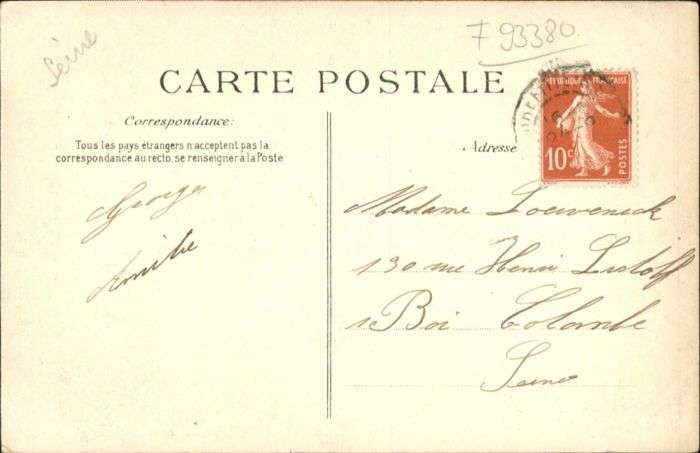 Seine
F 93380
CARTE POSTALE
Correspondance:
Tous les pays étrangers n'acceptent pas la
correspondance au recto, se renseigner à la Poste
Adresse
RÉPUBLIQUE FRANÇAISE
10c
POSTES
George
Madame Loeveneck
130 rue Henri Litolff
Boi Colombe
Seine